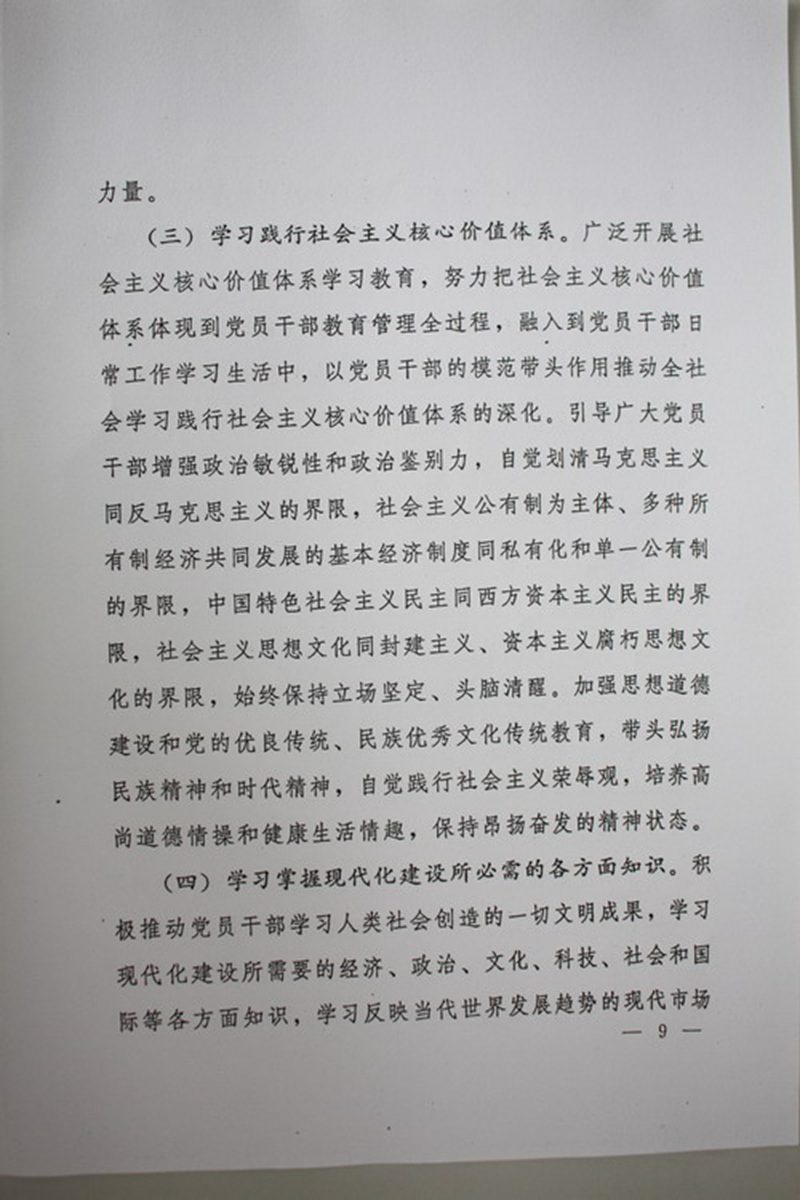 力量。
（三）学习践行社会主义核心价值体系。广泛开展社
会主义核心价值体系学习教育，努力把社会主义核心价值
体系体现到党员干部教育管理全过程，融入到党员干部日
常工作学习生活中，以党员干部的模范带头作用推动全社
会学习践行社会主义核心价值体系的深化。引导广大党员
干部增强政治敏锐性和政治鉴别力，自觉划清马克思主义
同反马克思主义的界限，社会主义公有制为主体、多种所
有制经济共同发展的基本经济制度同私有化和单一公有制
的界限，中国特色社会主义民主同西方资本主义民主的界
限，社会主义思想文化同封建主义、资本主义腐朽思想文
化的界限，始终保持立场坚定、头脑清醒。加强思想道德
建设和党的优良传统、民族优秀文化传统教育，带头弘扬
民族精神和时代精神，自觉践行社会主义荣辱观，培养高
尚道德情操和健康生活情趣，保持昂扬奋发的精神状态。
（四）学习掌握现代化建设所必需的各方面知识。积
极推动党员干部学习人类社会创造的一切文明成果，学习
现代化建设所需要的经济、政治、文化、科技、社会和国
际等各方面知识，学习反映当代世界发展趋势的现代市场
— 9 —